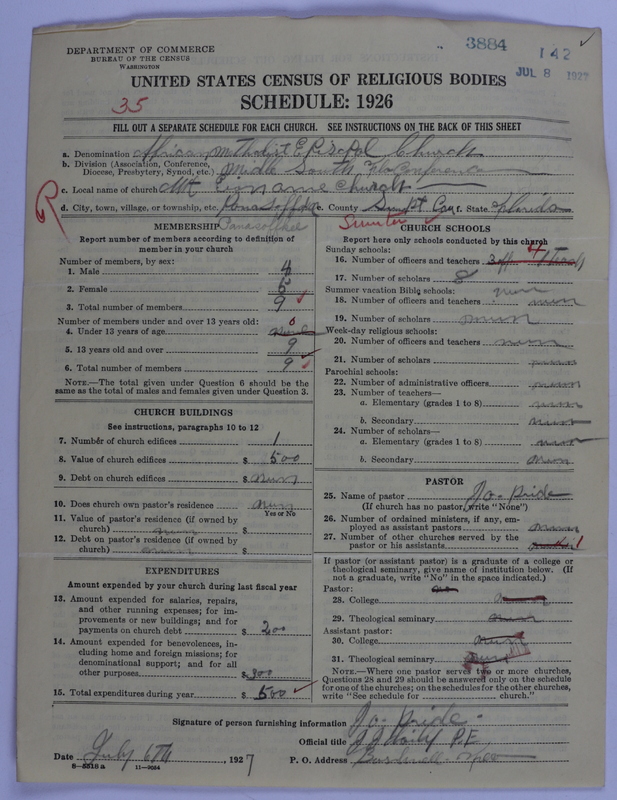 DEPARTMENT OF COMMERCE
BUREAU OF THE CENSUS
WASHINGTON
3884
142
JUL 8 1927
UNITED STATES CENSUS OF RELIGIOUS BODIES
SCHEDULE: 1926
35
FILL OUT A SEPARATE SCHEDULE FOR EACH CHURCH. SEE INSTRUCTIONS ON THE BACK OF THIS SHEET
a. Denomination African Methodist Episcopal Church
b. Division (Association, Conference, Diocese, Presbytery, Synod, etc.) Middle South Fla Conference
c. Local name of church Mt Church
R
d. City, town, village, or township, etc. e. County f. State Florida
Sumter
MEMBERSHIP
Panasoffkee
Report number of members according to definition of
member in your church
Number of members, by sex:
1. Male 4
2. Female 5
3. Total number of members 9
Number of members under and over 13 years old:
4. Under 13 years of age 0
5. 13 years old and over 9
6. Total number of members 9
NOTE.—The total given under Question 6 should be
same as the total of males and females given under Question 3.
CHURCH BUILDINGS
See instructions, paragraphs 10 to 12
7. Number of church edifices 1
8. Value of church edifices $ 500
9. Debt on church edifices $
10. Does church own pastor's residence
Yes or No
11. Value of pastor's residence (if owned by
church) $
12. Debt on pastor's residence (if owned by
church) $
EXPENDITURES
Amount expended by your church during last fiscal year
13. Amount expended for salaries, repairs,
and other running expenses; for im-
provements or new buildings; and for
payments on church debt $ 200
14. Amount expended for benevolences, in-
cluding home and foreign missions; for
denominational support; and for all
other purposes $ 300
15. Total expenditures during year $ 500
CHURCH SCHOOLS
Report here only schools conducted by this church
Sunday schools:
16. Number of officers and teachers 4
17. Number of scholars 8
Summer vacation Bible schools:
18. Number of officers and teachers
19. Number of scholars
Week-day religious schools:
20. Number of officers and teachers
21. Number of scholars
Parochial schools:
22. Number of administrative officers
23. Number of teachers—
a. Elementary (grades 1 to 8)
b. Secondary
24. Number of scholars—
a. Elementary (grades 1 to 8)
b. Secondary
PASTOR
25. Name of pastor Jo. Pride
(If church has no pastor, write "None")
26. Number of ordained ministers, if any, em-
ployed as assistant pastors
27. Number of other churches served by the
pastor or his assistants 1
If pastor (or assistant pastor) is a graduate of a college or
theological seminary, give name of institution below. (If
not a graduate, write "No" in the space indicated.)
Pastor:
28. College
29. Theological seminary
Assistant pastor:
30. College
31. Theological seminary
NOTE.—Where one pastor serves two or more churches,
Questions 28 and 29 should be answered only on the schedule
for one of the churches; on the schedules for the other churches,
write "See schedule for church."
Signature of person furnishing information Jo. Pride
Official title P.E.
Date July 6th, 1927
P. O. Address
8—5518a 11—9054